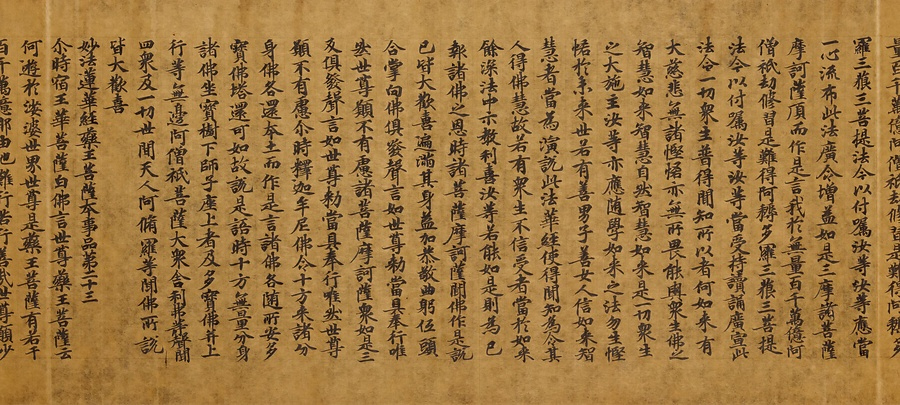 量百千萬億阿僧祇劫修習是難得阿耨多
羅三藐三菩提法今以付囑汝等汝等應當
一心流布此法廣令增益如是三摩諸菩薩
摩訶薩頂而作是言我於無量百千萬億阿
僧祇劫修習是難得阿耨多羅三藐三菩提
法今以付囑汝等汝等當受持讀誦廣宣此
法令一切衆生普得聞知所以者何如来有
大慈悲無諸慳悋亦無所畏能與衆生佛之
智慧如来智慧自然智慧如来是一切衆生
之大施主汝等亦應随學如来之法勿生慳
悋於未来世若有善男子善女人信如来智
慧者當為演說此法華經使得聞知為令其
人得佛慧故若有衆生不信受者當於如来
餘深法中示教利喜汝等若能如是則為已
報諸佛之恩時諸菩薩摩訶薩聞佛作是說
已皆大歡喜遍滿其身益加恭敬曲躬低頭
合掌向佛俱發聲言如世尊勅當具奉行唯
然世尊願不有慮諸菩薩摩訶薩衆如是三
反俱發聲言如世尊勅當具奉行唯然世尊
願不有慮尒時釋迦牟尼佛令十方来諸分
身佛各還本土而作是言諸佛各随所安多
寶佛塔還可如故說是語時十方無量分身
諸佛坐寶樹下師子座上者及多寶佛并上
行等無邊阿僧祇菩薩大衆舍利弗等聲聞
四衆及一切世間天人阿脩羅等聞佛所說
皆大歡喜
妙法蓮華經藥王菩薩本事品第二十三
尒時宿王華菩薩白佛言世尊藥王菩薩云
何遊於娑婆世界世尊是藥王菩薩有若干
百千萬億那由他難行苦行善哉世尊願少